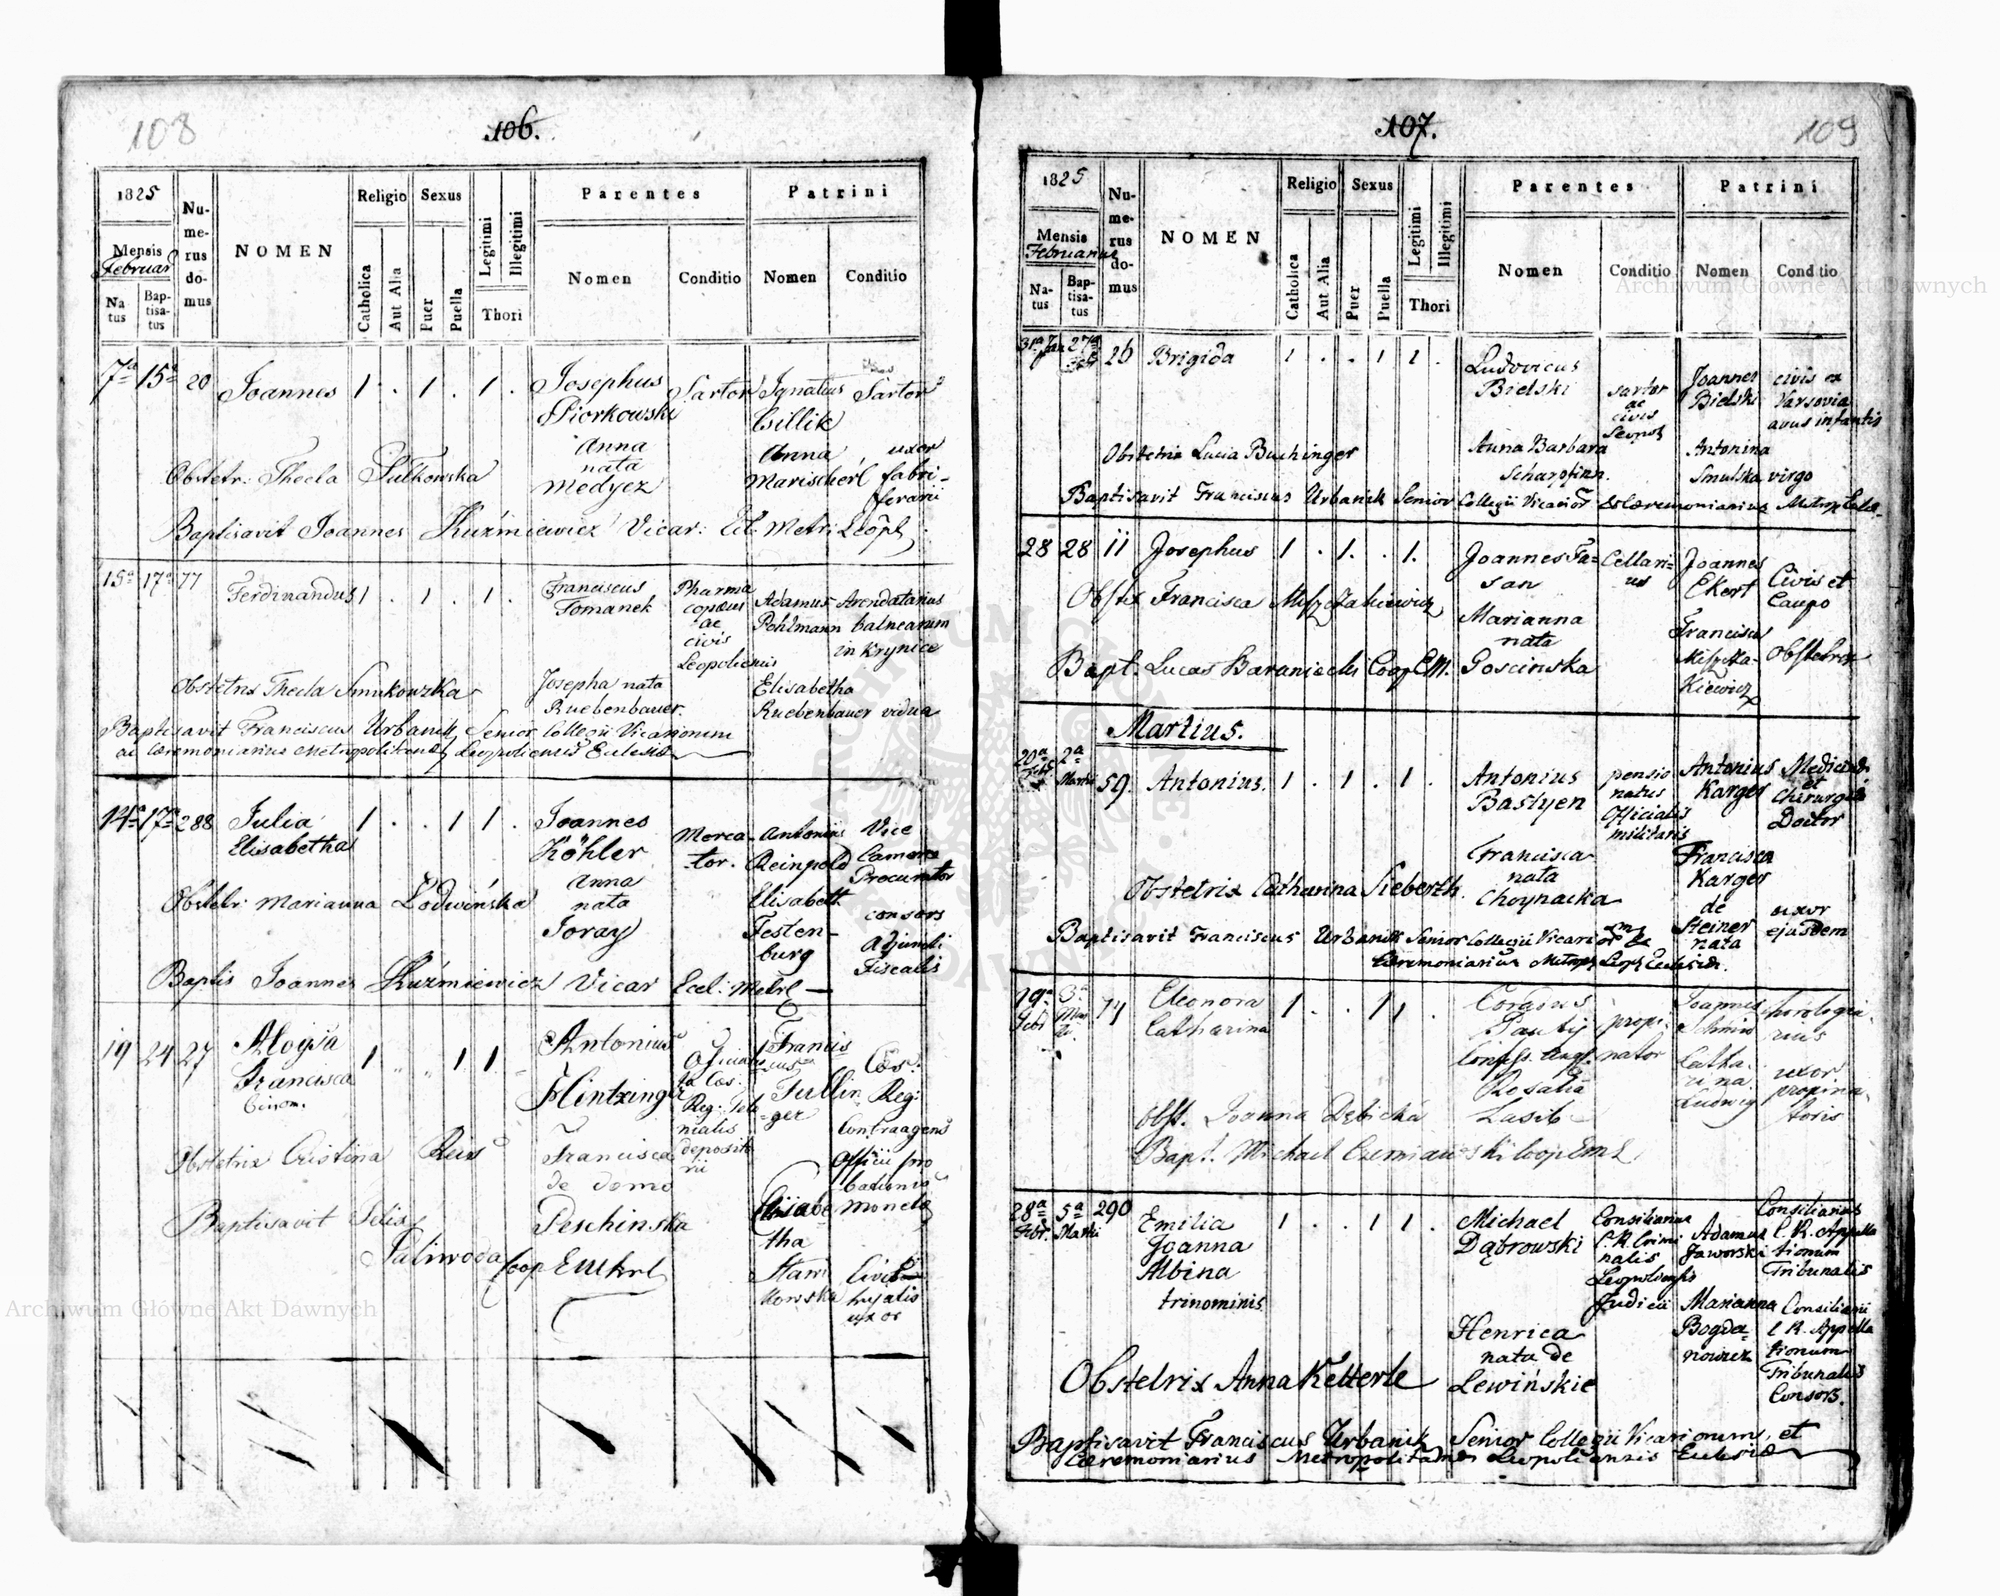 108
106.
1825
Mensis
Februar
Na
tus
Bap-
tisa-
tus
Nu-
me-
rus
do-
mus
NOMEN
Religio
Catholica
Aut Alia
Sexus
Puer
Puella
Legitimi
Illegitimi
Thori
Parentes
Nomen
Conditio
Patrini
Nomen
Conditio
7a 15a 20 Joannes 1 . 1 . 1 .
Josephus
Piorkowski
Anna
nata
Medycz
Sartor
Ignatius
Cillik
Sartor
Anna
Marischerl
uxor
fabri-
ferarii
Obstetr: Thecla Sulkowska
Baptisavit Joannes Kuźmiewicz Vicar: Ecl. Metr: Leopl.
15a 17a 77 Ferdinandus 1 . 1 . 1 .
Franciscus
Tomanek
Josepha nata
Ruebenbauer.
Pharma
copæus
ac
civis
Leopoliensis
Adamus
Pohlmann
Arendatarius
balnearum
in Krynice
Elisabetha
Ruebenbauer vidua
Obstetrix Thecla Smukowzka
Baptisavit Franciscus Urbanik Senior Collegii Vicariorum
ac Cæremoniarius Metropolitanæ Leopoliensis Eclesiæ
14a 17a 288 Julia
Elisabetha
1 . . 1 1 .
Joannes
Köhler
Anna
nata
Joray
Merca-
tor.
Antonius
Reinpold
Vice
Cameræ
Procurator
Elisabeth
Festen-
burg
consors
Adjuncti
Fiscalis
Obstetr: Marianna Lodwińska
Baptis Joannes Kuźmiewicz Vicar Ecel: Metrl
19 24 27 Aloysia
Francisca
binom.
1 . . 1 1 .
Antonius
Hintzinger
Francisca
de domo
Peschinska
Officialis
Reg:
nialis
deposito
rii
Francis
cus
Tullin
ger
Cæs:
Reg:
Contraagens
Officii pro
bationis
monetæ
Elisabe
tha
Stani
kowska
Civis
hujatis
uxor
Obstetrix Cristina Reis
Baptisavit Felix
Paliwoda Coop EMhrl
107.
109
1825
Mensis
Februarius
Na-
tus
Bap-
tisa-
tus
Nu-
me-
rus
do-
mus
NOMEN
Religio
Catholica
Aut Alia
Sexus
Puer
Puella
Legitimi
Illegitimi
Thori
Parentes
Nomen
Conditio
Patrini
Nomen
Conditio
31a Jan 27a Feb 26 Brigida 1 . . 1 1 .
Ludovicus
Bielski
Anna Barbara
Scharpfinn.
sartor
ac
civis
Leopol
Joannes
Bielski
civis ex
Varsovia
avus infantis
Antonina
Smulska virgo
Obstetrix Lucia Buchinger
Baptisavit Franciscus Urbanik Senior Collegii Vicarior et Cæremoniarius Metrop Ecclæ
28 28 11 Josephus 1 . 1. . 1.
Joannes Fa-
san
Marianna
nata
Goscinska
Cellari-
us
Joannes
Ekert
Civis et
Caupo
Francisca
Miszcza-
kiewicz
Obstetrix
Obstx Francisca Miszczakiewicz
Bapt. Lucas Baraniecki Coop EM.
Martius.
20a Febr 2a Martii 59 Antonius. 1 . 1 . 1 .
Antonius
Bastyen
Francisca
nata
Choynacka
pensio
natus
Officialis
militaris
Antonius
Karger
Medicinæ
et
Chirurgiæ
Doctor
Francisca
Karger
de
Steiner
nata
uxor
ejusdem
Obstetrix Catharina Sieberth.
Baptisavit Franciscus Urbanik Senior Collegii Vicariorum &
Cæremoniarius Metrop Leopl Eclesiæ.
19a Febr 3a Mar
tii 74 Eleonora
Catharina
1 . . 1 1 .
Pautij
Rosalia
Lasib
propi-
nator
Joannes
Schmid
horologia-
rius
Catha
rina
Ludwig
uxor
propina
toris
Obst. Joanna Dębicka
Bapt. Michael Coop EmL
28a Febr. 5a Martii 290 Emilia
Joanna
Albina
trinominis
1 . . 1 1 .
Michael
Dąbrowski
Henrica
nata de
Lewińskie
Consiliarius
C. R. Crimi
nalis
Leopoliensis
Judicii
Adamus
Jaworski
Consiliarius
C. R. Appella
tionum
Tribunalis
Marianna
Bogda-
nowicz
Consiliarii
C R. Appella
tionum
Tribunalis
Consors.
Obstetrix Anna Ketterle
Baptisavit Franciscus Urbanik Senior Collegii Vicariorum, et
Cæremoniarius Metropolitanæ Leopoliensis Eclesiæ
Archiwum Główne Akt Dawnych
Archiwum Główne Akt Dawnych
ARCHIWUM GŁÓWNE AKT DAWNYCH